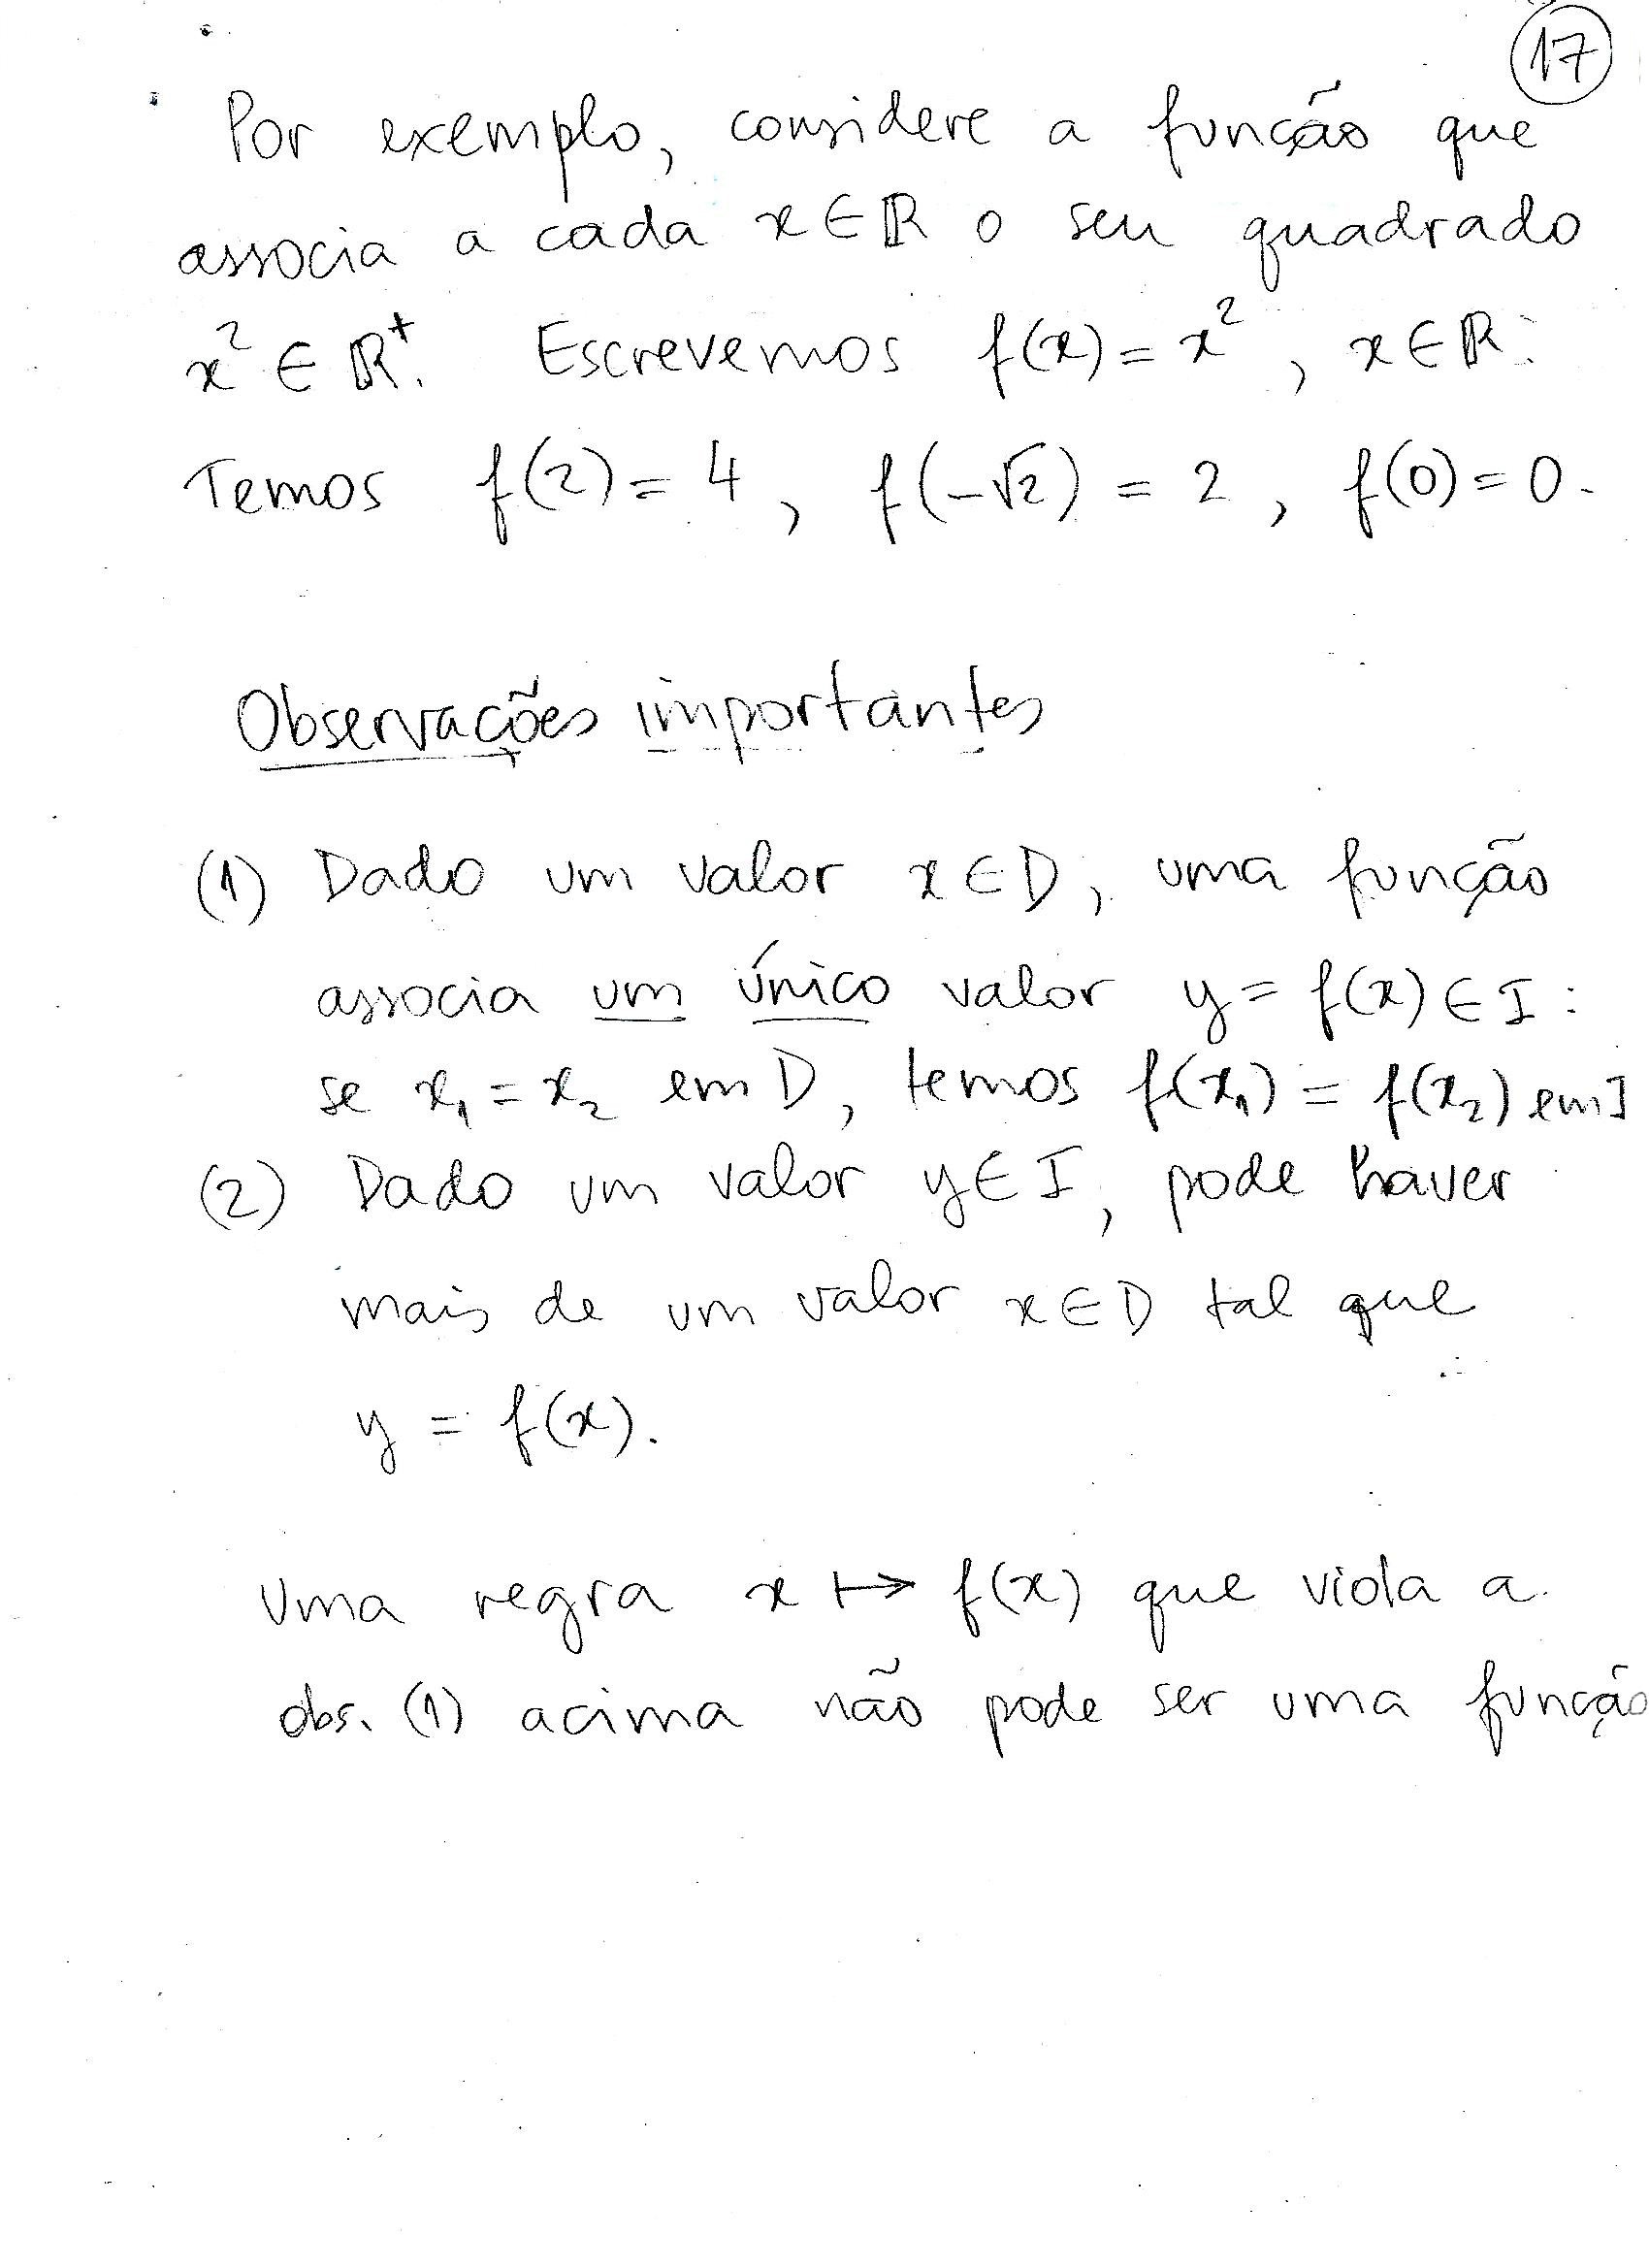 17
Por exemplo, considere a função que
associa a cada x ∈ ℝ o seu quadrado
x² ∈ ℝ⁺. Escrevemos f(x) = x², x ∈ ℝ.
Temos f(2) = 4, f(-√2) = 2, f(0) = 0.
Observações importantes
(1) Dado um valor x ∈ D, uma função
associa um único valor y = f(x) ∈ I:
se x₁ = x₂ em D, temos f(x₁) = f(x₂) em I
(2) Dado um valor y ∈ I, pode haver
mais de um valor x ∈ D tal que
y = f(x).
Uma regra x ↦ f(x) que viola a
obs. (1) acima não pode ser uma função